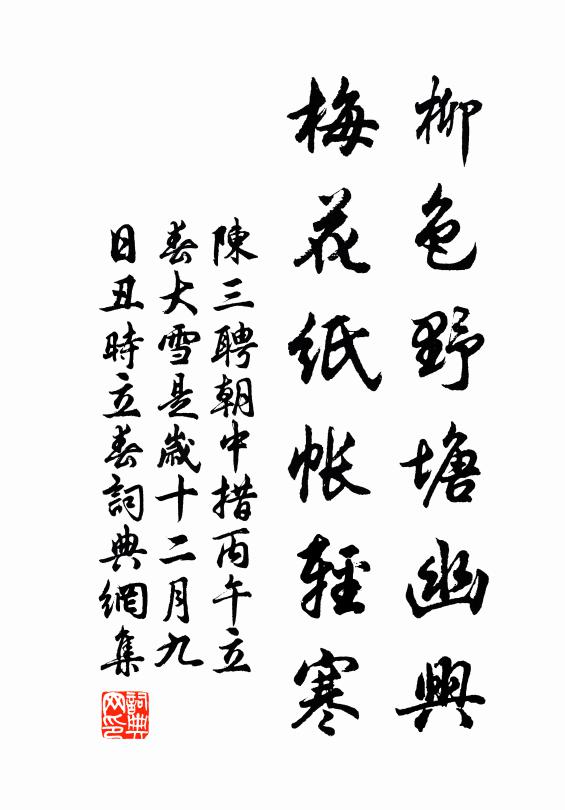 柳色野塘幽興
梅花紙帐輕寒
陳三聘朝中措丙午立
春大雪是歲十二月九
日丑時立春詞典網集
詞典
网印